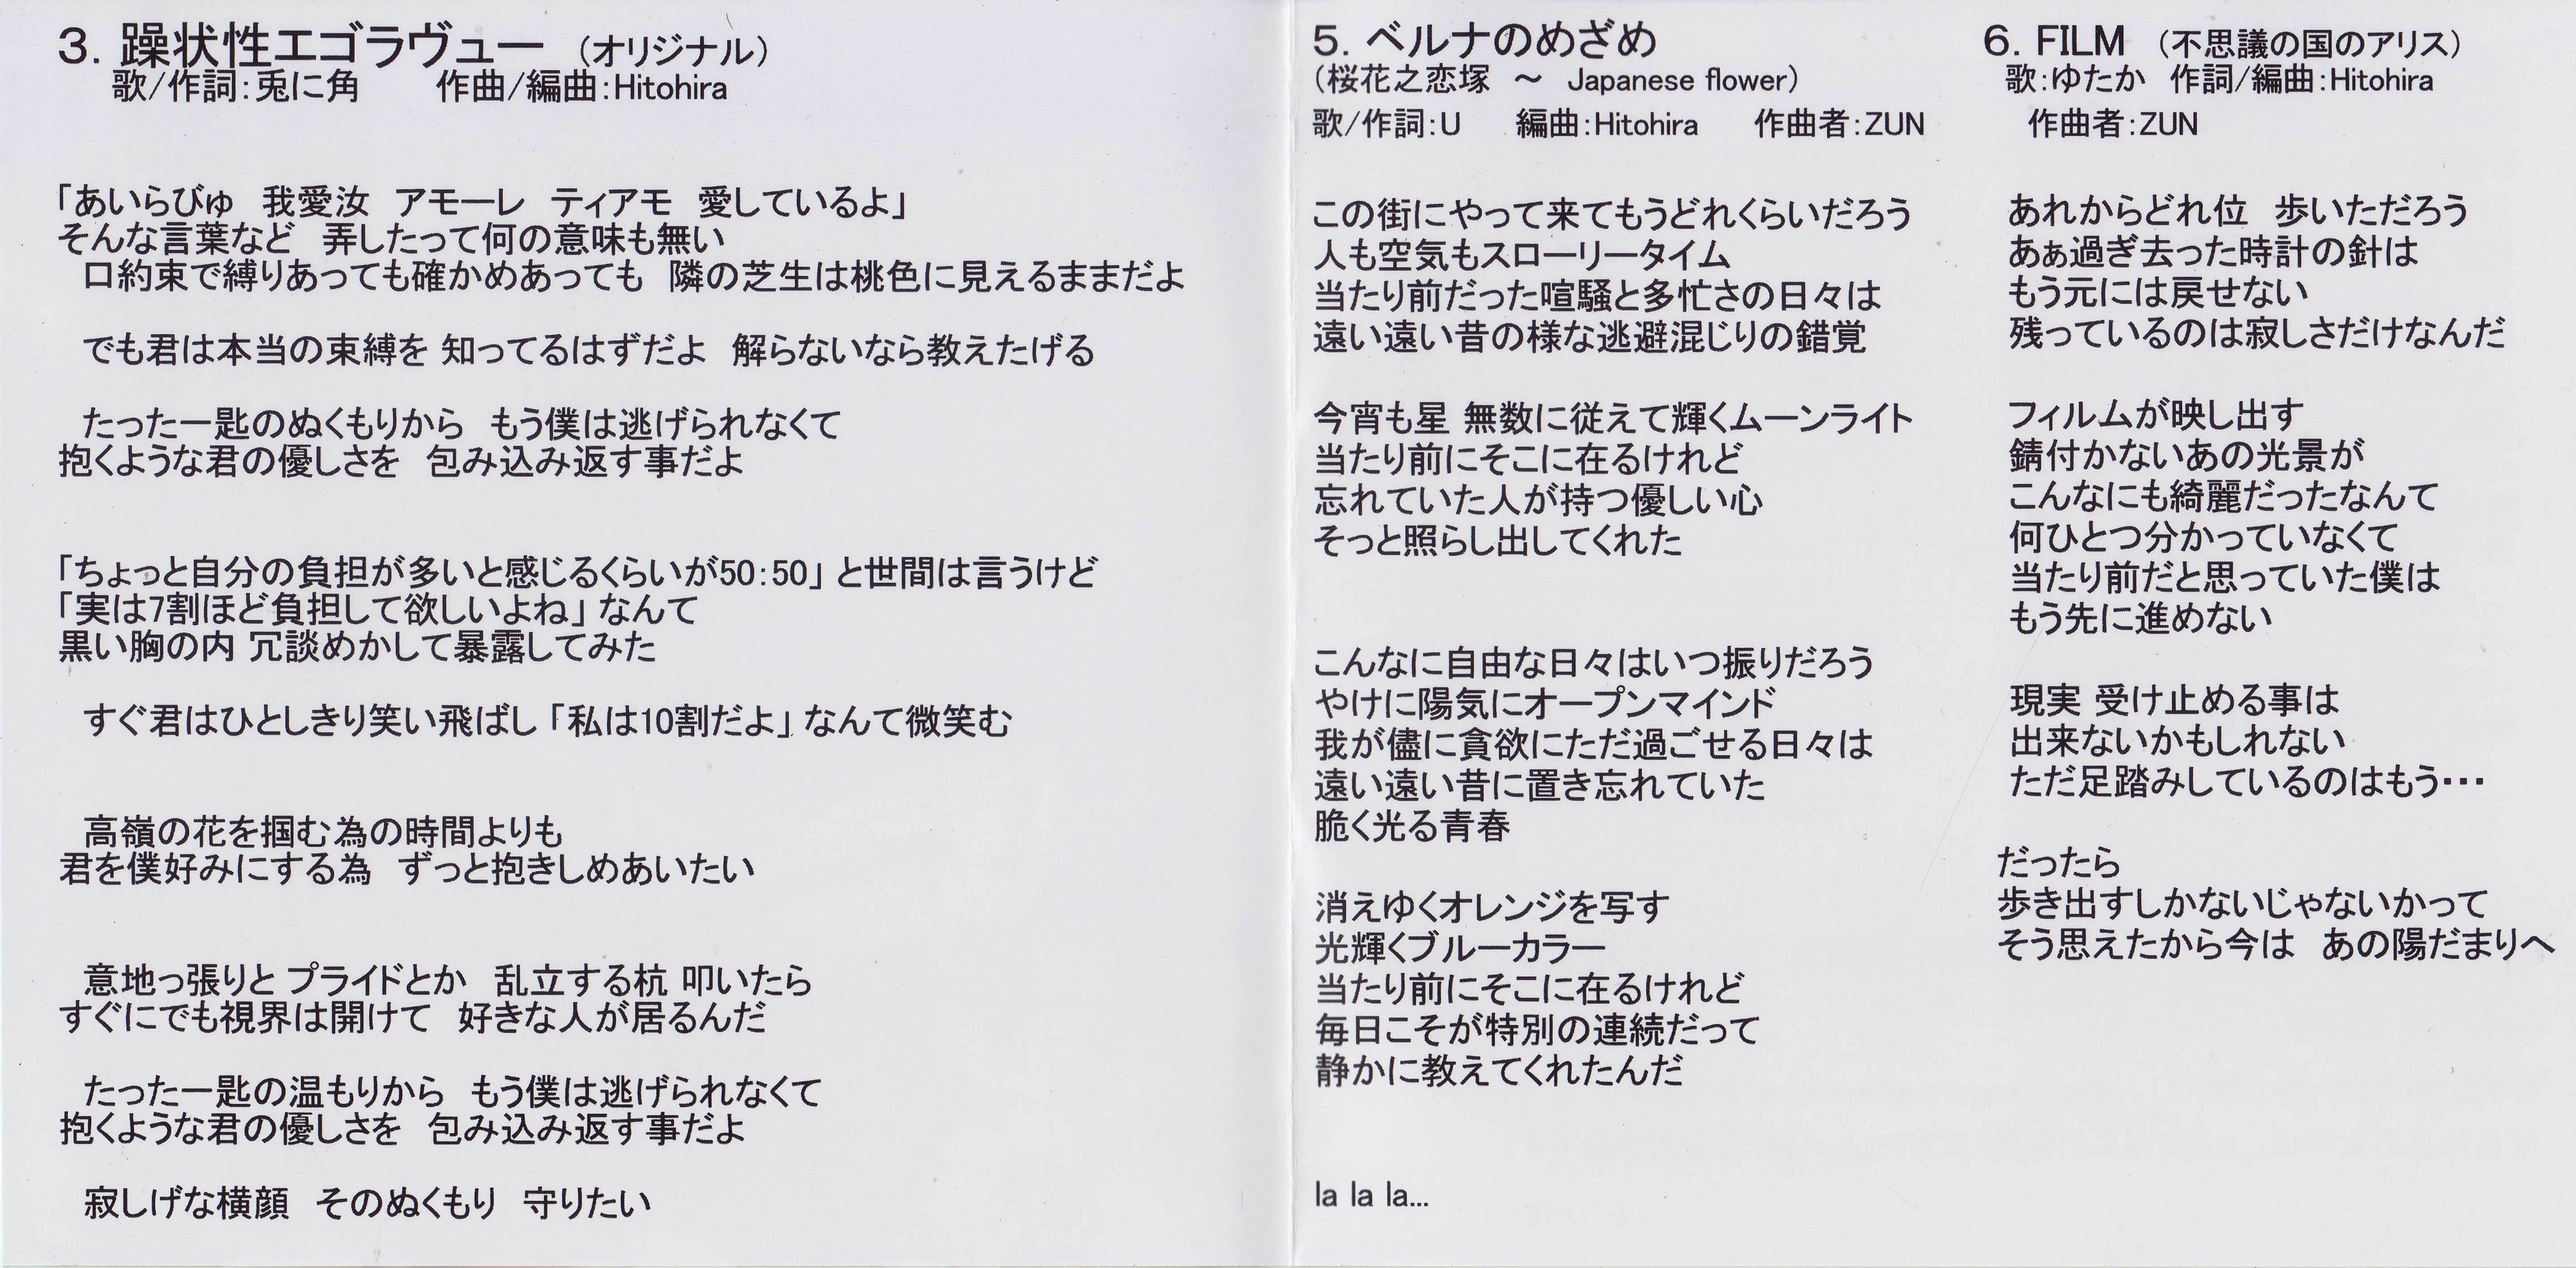 3. 躁状性エゴラヴュー （オリジナル）
歌/作詞：兎に角　　作曲/編曲：Hitohira
「あいらびゅ　我愛汝　アモーレ　ティアモ　愛しているよ」
そんな言葉など　弄したって何の意味も無い
口約束で縛りあっても確かめあっても　隣の芝生は桃色に見えるままだよ
でも君は本当の束縛を 知ってるはずだよ　解らないなら教えたげる
たった一匙のぬくもりから　もう僕は逃げられなくて
抱くような君の優しさを　包み込み返す事だよ
「ちょっと自分の負担が多いと感じるくらいが50：50」 と世間は言うけど
「実は7割ほど負担して欲しいよね」 なんて
黒い胸の内 冗談めかして暴露してみた
すぐ君はひとしきり笑い飛ばし 「私は10割だよ」 なんて微笑む
高嶺の花を掴む為の時間よりも
君を僕好みにする為　ずっと抱きしめあいたい
意地っ張りと プライドとか　乱立する杭 叩いたら
すぐにでも視界は開けて　好きな人が居るんだ
たった一匙の温もりから　もう僕は逃げられなくて
抱くような君の優しさを　包み込み返す事だよ
寂しげな横顔　そのぬくもり　守りたい
5. ベルナのめざめ
（桜花之恋塚　～　Japanese flower）
歌/作詞：U　　編曲：Hitohira　　作曲者：ZUN
この街にやって来てもうどれくらいだろう
人も空気もスローリータイム
当たり前だった喧騒と多忙さの日々は
遠い遠い昔の様な逃避混じりの錯覚
今宵も星 無数に従えて輝くムーンライト
当たり前にそこに在るけれど
忘れていた人が持つ優しい心
そっと照らし出してくれた
こんなに自由な日々はいつ振りだろう
やけに陽気にオープンマインド
我が儘に貪欲にただ過ごせる日々は
遠い遠い昔に置き忘れていた
脆く光る青春
消えゆくオレンジを写す
光輝くブルーカラー
当たり前にそこに在るけれど
毎日こそが特別の連続だって
静かに教えてくれたんだ
la la la...
6. FILM　（不思議の国のアリス）
歌：ゆたか　作詞/編曲：Hitohira
作曲者：ZUN
あれからどれ位　歩いただろう
あぁ過ぎ去った時計の針は
もう元には戻せない
残っているのは寂しさだけなんだ
フィルムが映し出す
錆付かないあの光景が
こんなにも綺麗だったなんて
何ひとつ分かっていなくて
当たり前だと思っていた僕は
もう先に進めない
現実 受け止める事は
出来ないかもしれない
ただ足踏みしているのはもう・・・
だったら
歩き出すしかないじゃないかって
そう思えたから今は　あの陽だまりへ